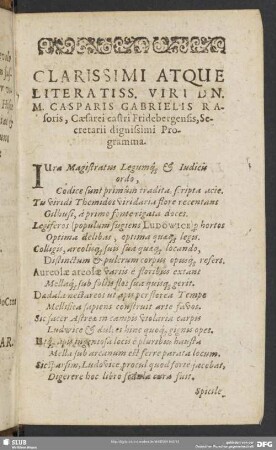 CLARISSIMI ATQUE
LITERATISS. VIRI DN.
M. CASPARIS GABRIELIS RA-
soris, Cæsarei castri Fridebergensis, Se-
cretarii dignissimi Pro-
gramma.
IUra Magistratus Legumq́, & Iudicii
ordo,
Codice sunt primùm tradita, scripta acie.
Tu viridi Themidos viridaria flore recentans
à primo fonte rigata doces.
Legiferos populum fugiens LUDOWICE hortos
Optima delibas, optima quæq́, legis.
Colligis, areolisq́, suis sua quæq́, locando,
Distinctum & pulcrum corpus opusq́, refers.
Aureolæ areolæ variis è floribus extant
Mellaq́, sub foliis flos sua quisq́, gerit.
Dædala nectareos ut apis per florea Tempe
Mellifica sapiens construit arte favos.
Sic sacer Astreæ in campis violaria carpis
Ludwice & hinc quoq́, pignus opes.
apis ingeniosa loci è pluribus hausta
Mella sub arcanum est ferre parata locum.
Sic sparsim, Ludwice, procul quod forte jacebat,
Digerere hoc libro sedula cura fuit.
Spicile
DOCTISS
AR.
SLUB
DFG